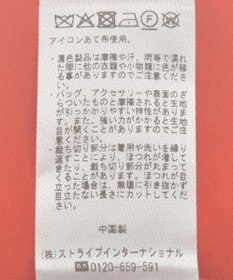 アイロンあて布使用。
・濃色製品は摩擦や汗、雨等で濡れ
た際に他の衣類や小物類に色が移
る事がありますのでご注意くださ
い。
・バッグ、アクセサリーや表面のざ
らついたものと摩擦されると生地
が引っかかりやすい特性があり
ます。また、強い力がかかると生地
目が開くことがありますのでご注
意ください。
・裁ち切り部分は着用や洗いを繰り
返すことにより、ほつれが増して
たり、裁ち切り部分がまるまって
くることがあります。ほつれが目
立った場合は、無理に引き抜かず
目立たない長さにカットしてくだ
さい。
中国製
(株)ストライプインターナショナル
0120-659-591